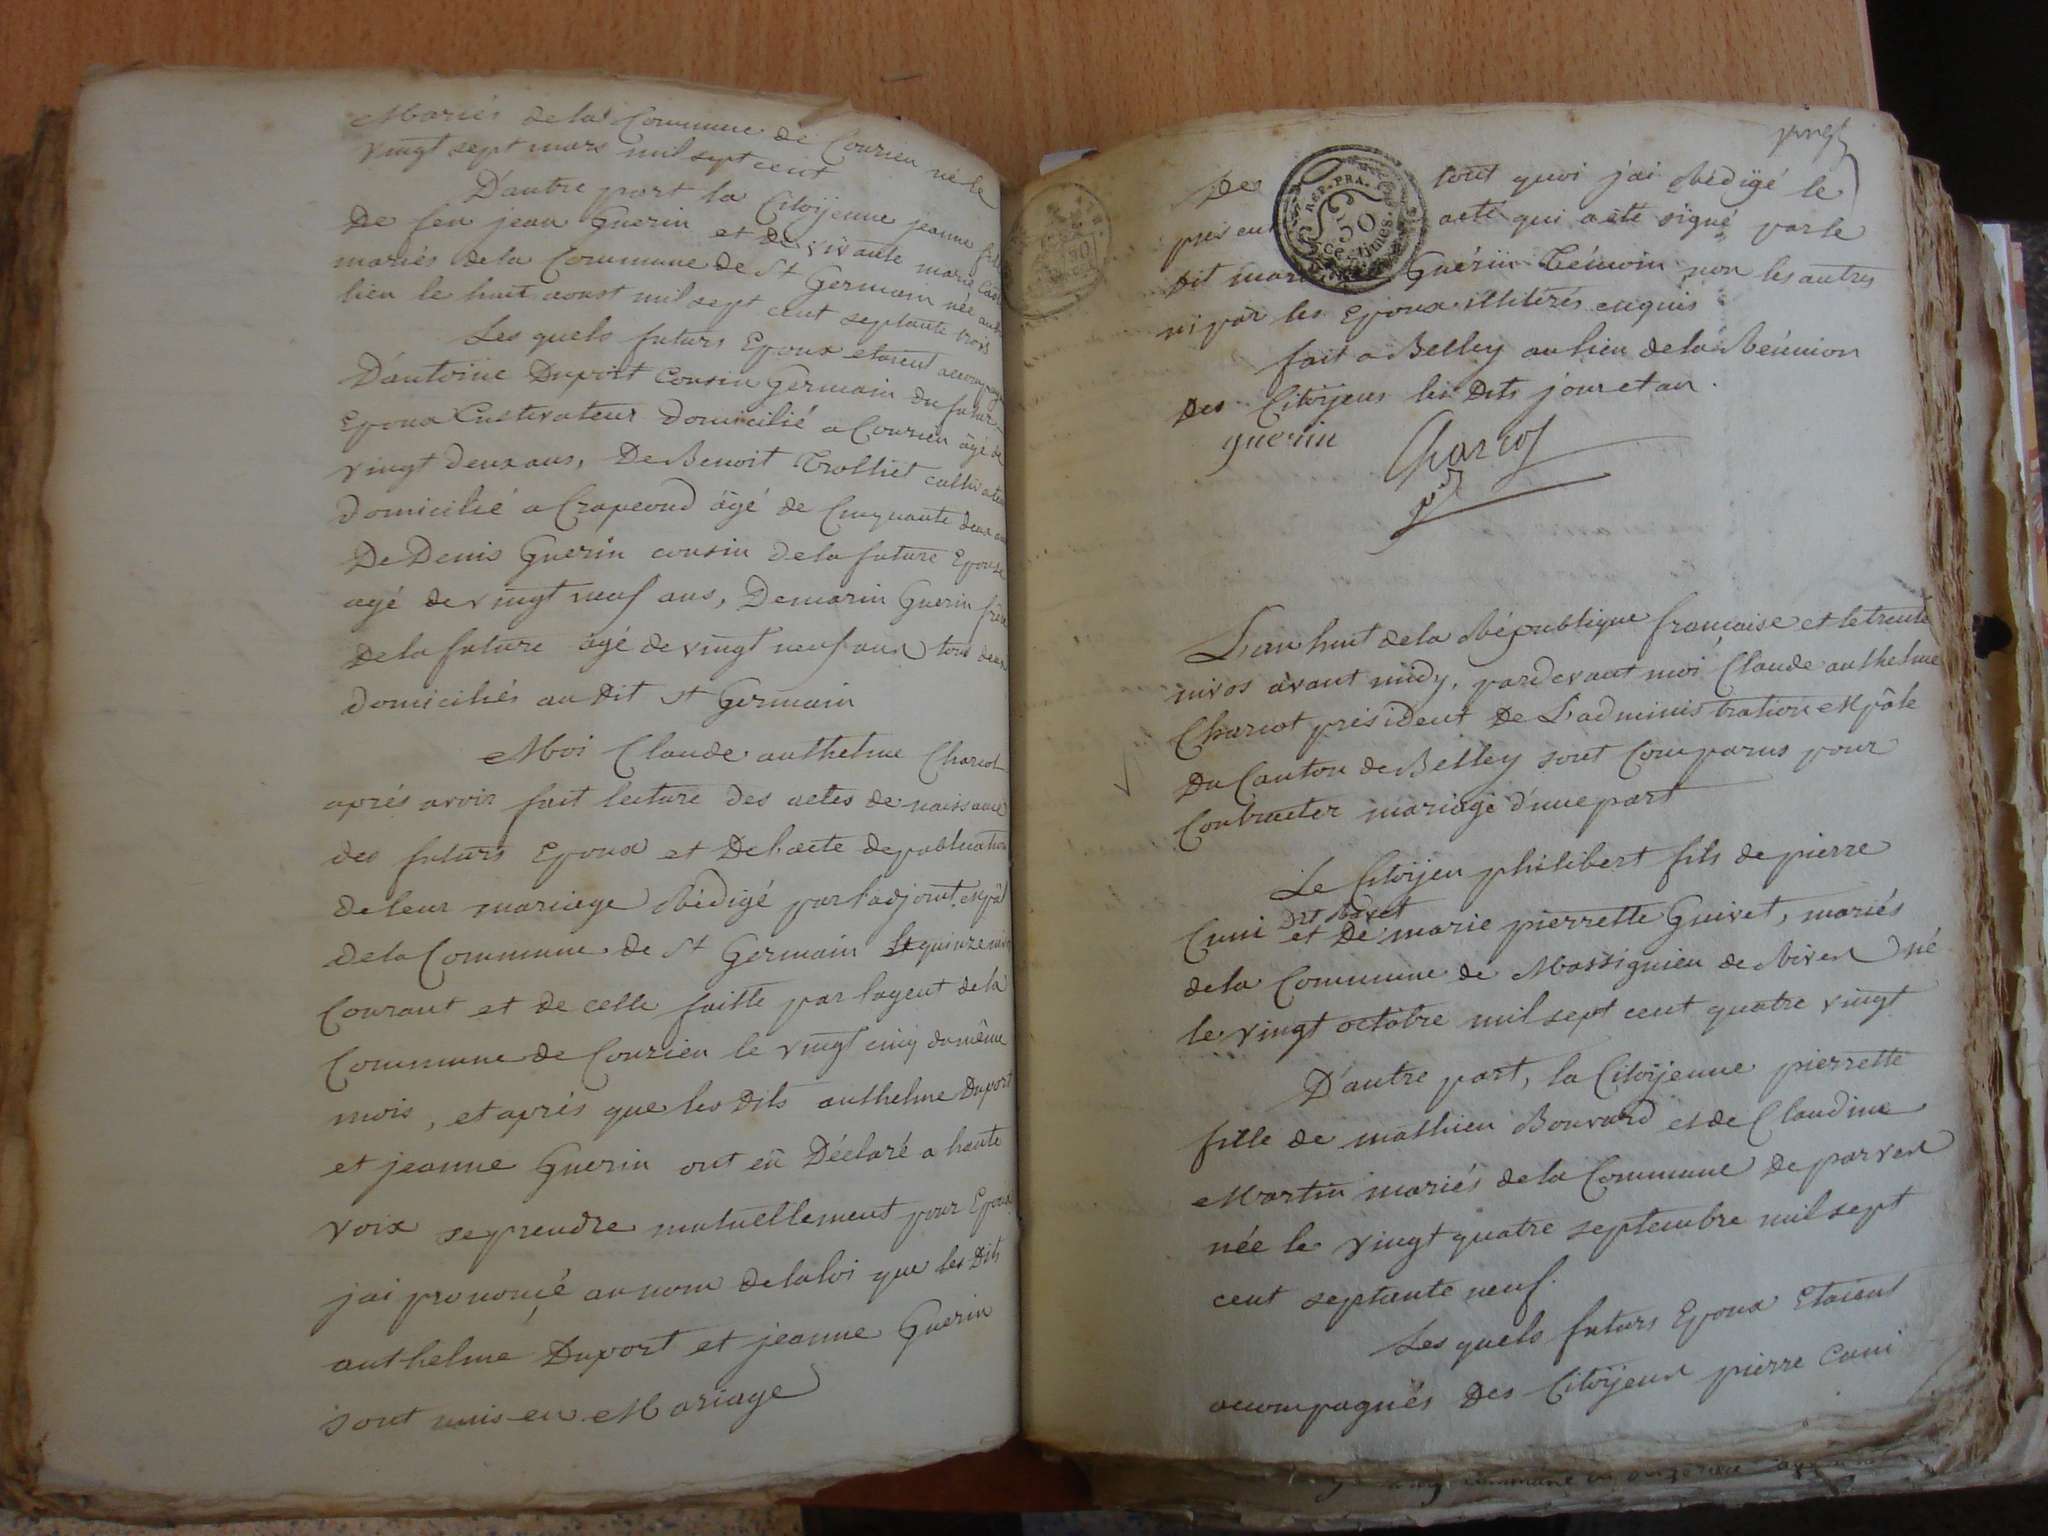 Mariés de la Commune de Courieu né le
vingt sept mars mil sept cent
D'autre part la Citoÿenne jeanne fille
De feu jean Guerin et de vivante marie
mariés de la Commune de St Germain née audit
lieu le huit aoust mil sept cent septante trois
Les quels futurs Epoux etoient accompagnés
D'antoine Duport Cousin Germain du futur
Epoux Cultivateur domicilié a Courieu âgé de
vingt deux ans, De Benoit Trolliet cultivateur
domicilié a Crapeoud âgé de Cinquante deux ans
De Denis Guerin cousin de la future Epouse
agé de vingt neuf ans, De marin Guerin frère
De la future âgé de vingt neuf ans tous deux
domiciliés au Dit St Germain
Moi Claude anthelme Charcot
aprés avoir fait lecture des actes de naissance
des futurs Epoux et De l'acte de publication
de leur mariage Rédigé par l'adjoint Mpâl
de la Commune de St Germain le quinze nivos
Courant et de celle faitte par lagent de la
Commune de Courieu le vingt cinq du même
mois, et aprés que les Dits anthelme Duport
et jeanne Guerin ont eû Déclaré a haute
voix se prendre mutuellement pour Epoux
jai prononcé au nom de la loi que les Dits
anthelme Duport et jeanne Guerin
sont unis en Mariage
vingt
De tout quoi j'ai Rédigé le
present acte qui a été signé par le
dit marin Guérin Témoin non les autres
ni par les Epoux illitérés enquis
fait a Belley au lieu de la Réunion
Des Citoÿens les Dits jour et an.
guerin Charcot
pdt
REP. FRA.
50
Centimes
L'an huit de la République francaise et le trente
nivos avant midy, pardevant moi Claude anthelme
Charcot président De L'administration Mpâle
Du Canton de Belley sont Comparus pour
Contracter mariage d'une part
Le Citoÿen philibert fils de pierre
Dit Novet
Cuni et De marie pierrette Guivet, mariés
de la Commune de Massignieu de Rives né
le vingt octobre mil sept cent quatre vingt
D'autre part, la Citoÿenne pierrette
fille de mathieu Bouvard et de Claudine
Martin mariés de la Commune De parves
née le vingt quatre septembre mil sept
cent septante neuf.
Les quels futurs Epoux Etoient
accompagnés Des Citoÿens pierre Cuni